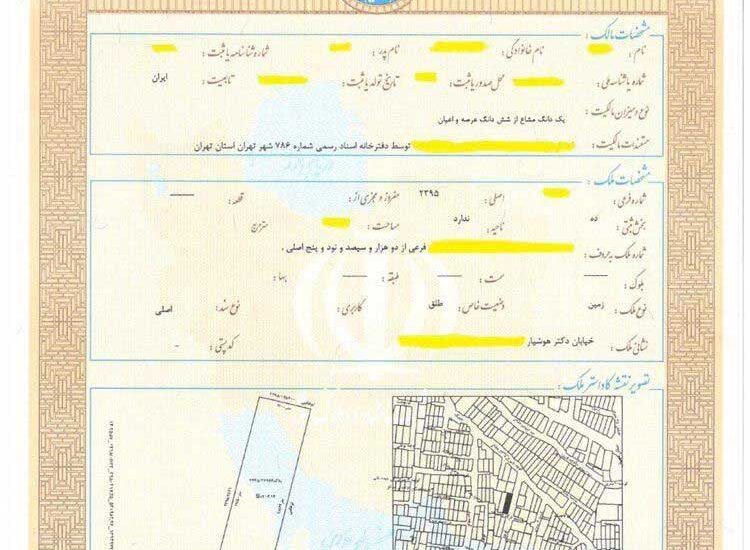 مشخصات مالک :
نام : نام خانوادگی : نام پدر : شماره شناسنامه یا ثبت :
شماره یا شناسه ملی : محل صدور یا ثبت : تاریخ تولد یا ثبت : تابعیت : ایران
نوع و میزان مالکیت : یک دانگ مشاع از شش دانگ عرصه و اعیان
مستندات مالکیت : توسط دفترخانه اسناد رسمی شماره ۷۸۶ شهر تهران استان تهران
مشخصات ملک :
شماره فرعی : اصلی : ۲۳۹۵ مفروز و مجزی از : قطعه :
بخش ثبتی : ده ناحیه : ندارد مساحت : مترمربع
شماره ملک به حروف : فرعی از دو هزار و سیصد و نود و پنج اصلی ,
بلوک : سمت : طبقه : بها :
نوع ملک : زمین وضعیت خاص : طلق کاربری : نوع سند : اصلی
نشانی ملک : خیابان دکتر هوشیار کد پستی : -
تصویر نقشه کاداستر ملک :